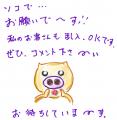 ソコで…
お願いで～す!!
私のお書さんも引入、OKです。
ぜひ、コメント下さ～い
お待ちしていま～す。